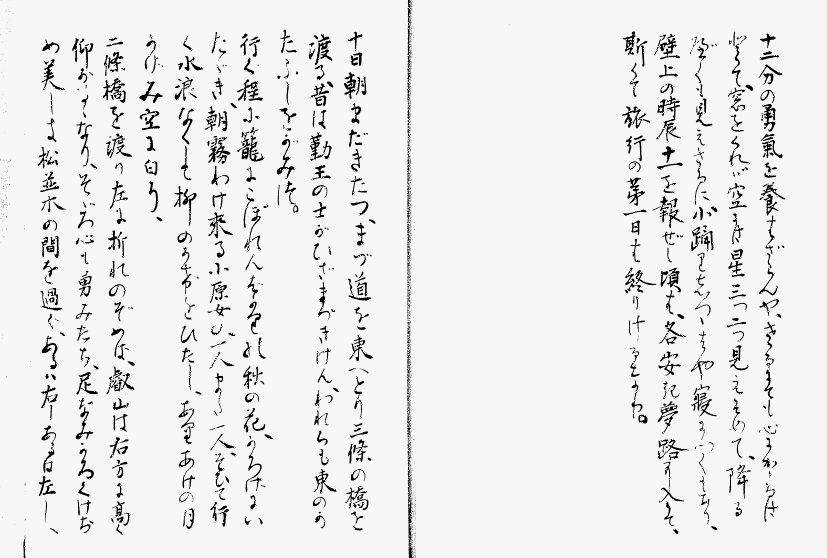 十二分の勇氣を養はざらんや、さるにても心にかゝるは
とて窓をくれば空には星三つ二つ見えそめて、降る
べくも見えざるに小踊りしつゝはや寝につくもあり、
壁上の時辰十一を報ぜし頃は、各安き夢路に入りて、
斯くて旅行の第一日も終りけるとかや。
十日朝まだきたつ、まづ道を東へとり三條の橋を
渡る昔は勤王の士がひざまづきけん、われらも東のか
たふしをがみつ。
行く程に籠にこぼれんばかりの秋の花、かろげにい
たゞき、朝霧わけ來る小原女の一人また一人、そむて行
く水浪なくして柳のかげをひたし、ありあけの月
うけみ空に白り、
二條橋を渡り左に折れのぞめば、叡山は右方に高く
仰がれてなり、そゞろ心も勇みたち、足なみかろくけお
め美しき松並木の間を過ぐ、あるは右しあるは左し、